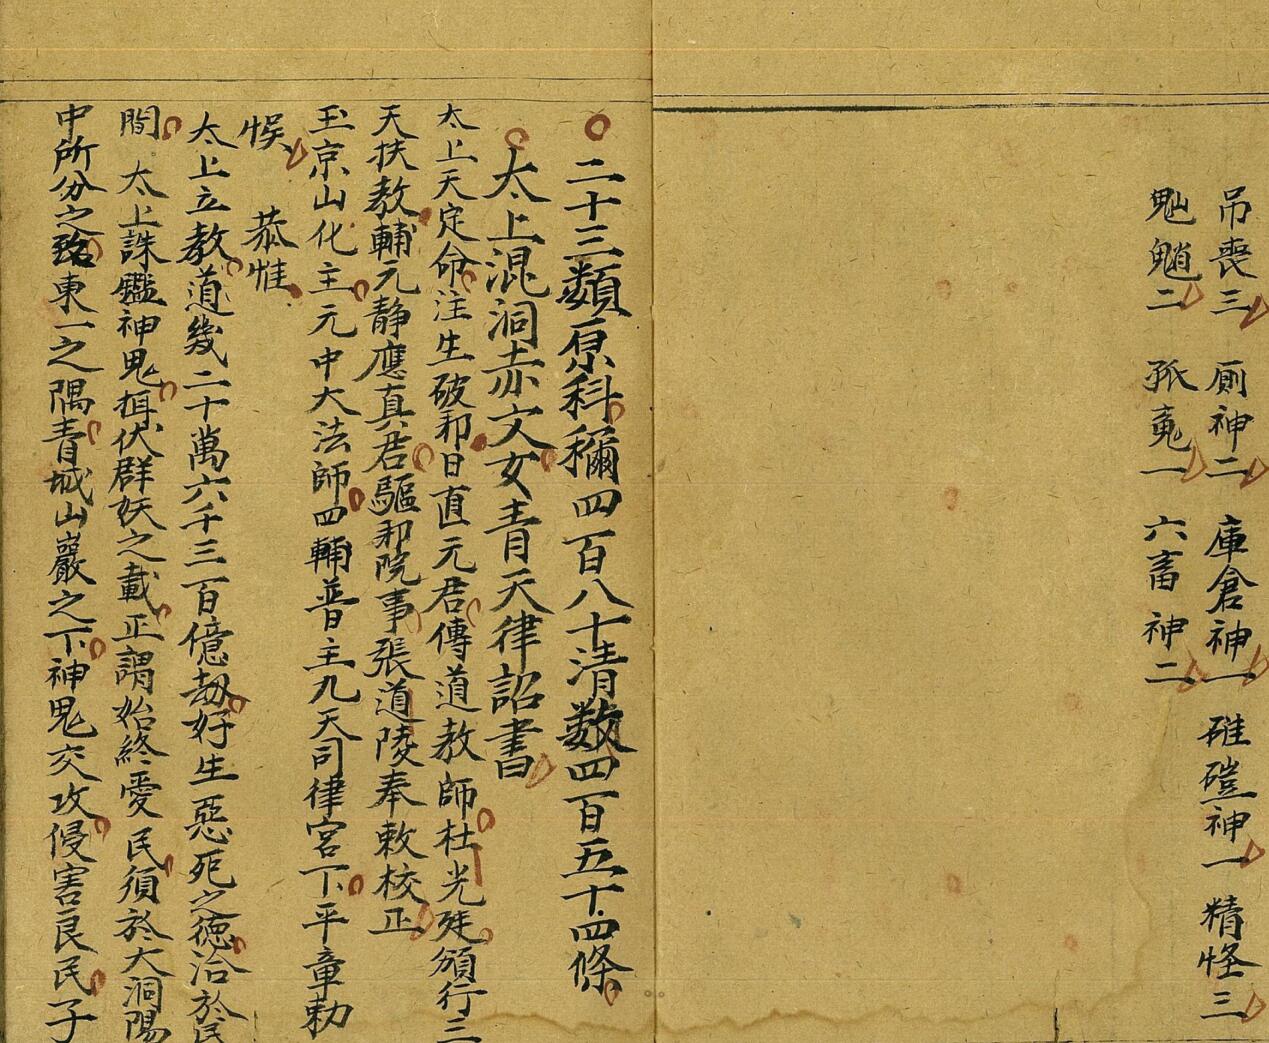 吊喪三 厠神二 庫倉神一 碓磑神一 精怪三
魈二 孤䰡一 六畜神二
二十三類原科稱四百八十清数四百五十四條
太上混洞赤文女青天律詔書
太上天定命注生破邪日直元君傳道教師杜光廷頒行三
天扶教輔元静應真君驅邪院事張道陵奉敕校正
玉京山化主元中大法師四輔普主九天司律宮下平章勅
悮 恭惟
太上立教道幾二十萬六千三百億劫好生惡死之德洽於民
間 太上誅鑑神鬼揖伏群妖之載正謂始終愛民須於大洞陽
中所分之臨東一之隅青城山巖之下神鬼交攻侵害良民子